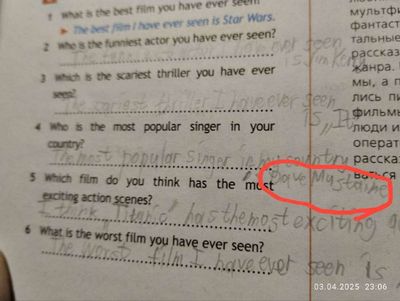 1 What is the best film you have ever seen?
▶ The best film I have ever seen is Star Wars.
2 Who is the funniest actor you have ever seen?
ever seen
is
3 Which is the scariest thriller you have ever
seen?
thriller I have ever seen
is "It"
4 Who is the most popular singer in your
country?
The most popular singer in my country
is Dave Mustaine
5 Which film do you think has the most
exciting action scenes?
I think "Titanic" has the most exciting
6 What is the worst film you have ever seen?
The worst film I have ever seen is
мультфи
фантаст
тальные
рассказ
жанра.
мы, а п
лись пи
фильмы
люди и
операт
расска
ваться
03.04.2025 23:06